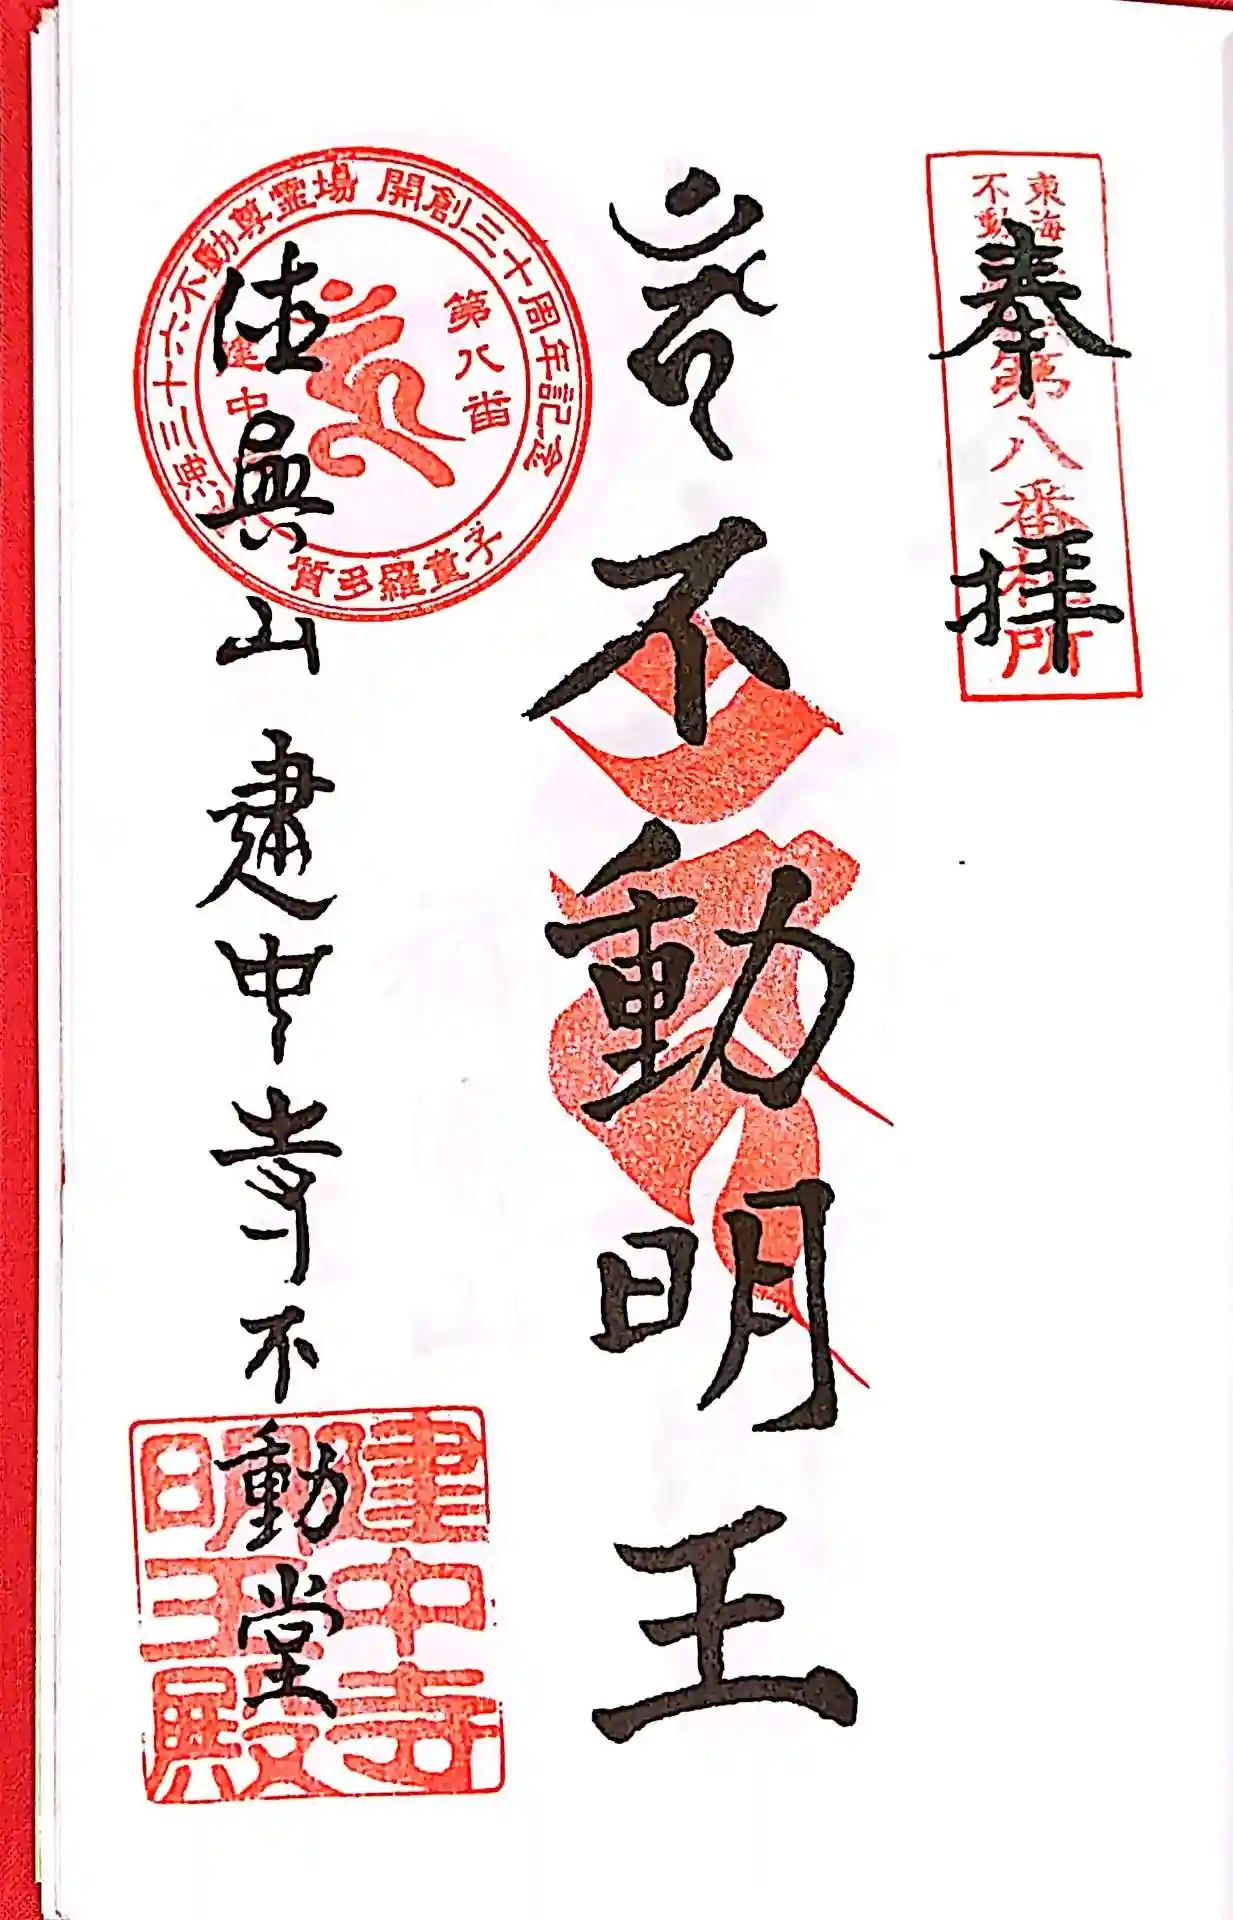 奉拝
東海
不動
第八番札所
不動明王
開創三十周年記念
三十六不動尊霊場
第八番
建中
質多羅童子
徳興山建中寺不動堂
建中寺
明王殿